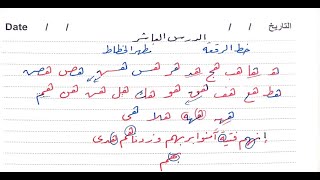 Date / / التاريخ / /
الدرس العاشر
خط الرقعة نظير الخطاط
هد ها هب هج هد هر هس هسـ هص هصن
هط هع هف هق هو هك هل هسن هن هيم
هه ههه هلا هى
إنهم فتية آمنوا بربهم وزدناهم هدى
بهم